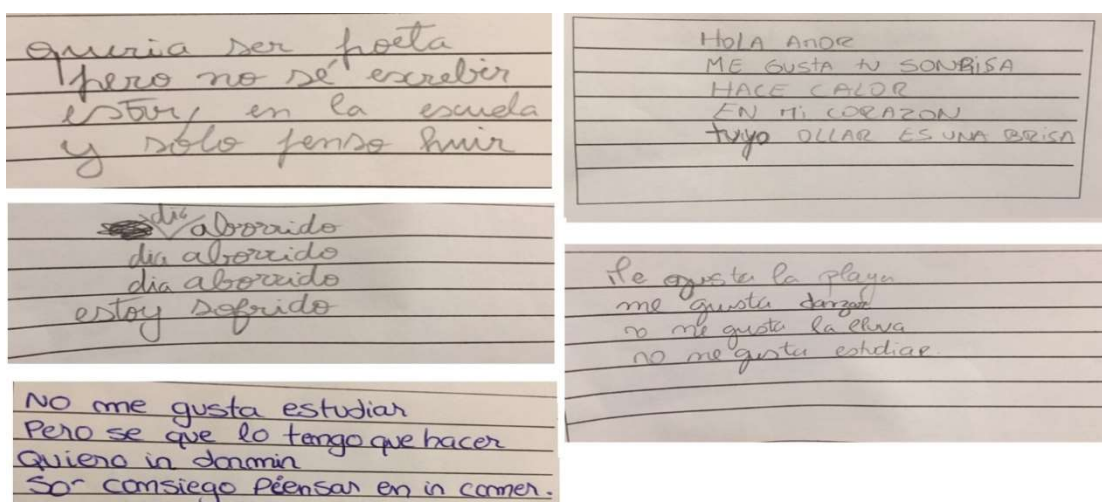 queria ser poeta
pero no sé escrebir
estoy en la escuela
y sólo penso huir
dia aborrido
dia aborrido
dia aborrido
estoy sofrido
NO me gusta estudiar
Pero se que lo tengo que hacer
Quiero ir dormir
So consiego péensar en ir comer.
HOLA AMOR
ME GUSTA tU SONRISA
HACE CALOR
EN MI CORAZON
tuyo OLLAR ES UNA BRISA
Me gusta la playa
me gusta danzar
no me gusta la eluva
no me gusta estudiar.